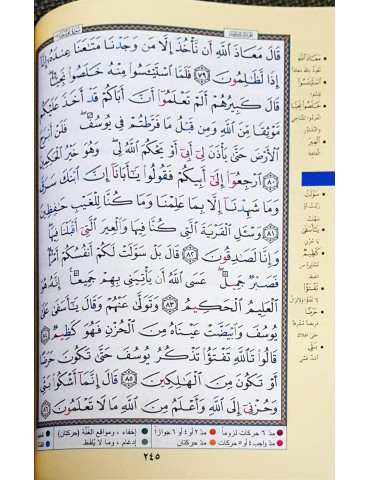 قَالَ مَعَاذَ ٱللَّهِ أَن نَّأْخُذَ إِلَّا مَن وَجَدْنَا مَتَٰعَنَا عِندَهُۥٓ
إِنَّآ إِذًا لَّظَٰلِمُونَ ٧٩ فَلَمَّا ٱسْتَيْـَٔسُوا۟ مِنْهُ خَلَصُوا۟ نَجِيًّا
قَالَ كَبِيرُهُمْ أَلَمْ تَعْلَمُوٓا۟ أَنَّ أَبَاكُمْ قَدْ أَخَذَ عَلَيْكُم
مَّوْثِقًا مِّنَ ٱللَّهِ وَمِن قَبْلُ مَا فَرَّطتُمْ فِى يُوسُفَ فَلَنْ أَبْرَحَ
ٱلْأَرْضَ حَتَّىٰ يَأْذَنَ لِىٓ أَبِىٓ أَوْ يَحْكُمَ ٱللَّهُ لِى وَهُوَ خَيْرُ ٱلْحَٰكِمِينَ
٨٠ ٱرْجِعُوٓا۟ إِلَىٰٓ أَبِيكُمْ فَقُولُوا۟ يَٰٓأَبَانَآ إِنَّ ٱبْنَكَ سَرَقَ
وَمَا شَهِدْنَآ إِلَّا بِمَا عَلِمْنَا وَمَا كُنَّا لِلْغَيْبِ حَٰفِظِينَ
٨١ وَسْـَٔلِ ٱلْقَرْيَةَ ٱلَّتِى كُنَّا فِيهَا وَٱلْعِيرَ ٱلَّتِىٓ أَقْبَلْنَا فِيهَا
وَإِنَّا لَصَٰدِقُونَ ٨٢ قَالَ بَلْ سَوَّلَتْ لَكُمْ أَنفُسُكُمْ أَمْرًا
فَصَبْرٌ جَمِيلٌ عَسَى ٱللَّهُ أَن يَأْتِيَنِى بِهِمْ جَمِيعًا إِنَّهُۥ هُوَ
ٱلْعَلِيمُ ٱلْحَكِيمُ ٨٣ وَتَوَلَّىٰ عَنْهُمْ وَقَالَ يَٰٓأَسَفَىٰ عَلَىٰ
يُوسُفَ وَٱبْيَضَّتْ عَيْنَاهُ مِنَ ٱلْحُزْنِ فَهُوَ كَظِيمٌ ٨٤
قَالُوا۟ تَٱللَّهِ تَفْتَؤُا۟ تَذْكُرُ يُوسُفَ حَتَّىٰ تَكُونَ حَرَضًا
أَوْ تَكُونَ مِنَ ٱلْهَٰلِكِينَ ٨٥ قَالَ إِنَّمَآ أَشْكُوا۟ بَثِّى
وَحُزْنِىٓ إِلَى ٱللَّهِ وَأَعْلَمُ مِنَ ٱللَّهِ مَا لَا تَعْلَمُونَ ٨٦
مَعَاذَ اللَّهِ
نَعُوذُ بِاللَّهِ مَعَاذًا
اسْتَيْئَسُوا
يَئِسُوا
خَلَصُوا نَجِيًّا
الْعِيرَ
القافلة
سَوَّلَتْ
زَيَّنَتْ أو
سَهَّلَتْ
يَا أَسَفَى
يَا حُزْنِي
كَظِيمٌ
تَفْتَؤُا
حَرَضًا
بَثِّي
أَشَدّ غَمِّي
مدّ ٦ حركات لزوماً
مدّ ٢ أو ٤ أو ٦ جوازاً
إخفاء، ومواقع الغُنَّة (حركتان)
مدّ واجب ٤ أو ٥ حركات
مدّ حركتان
إدغام، وما لا يُلفَظ
٢٤٥